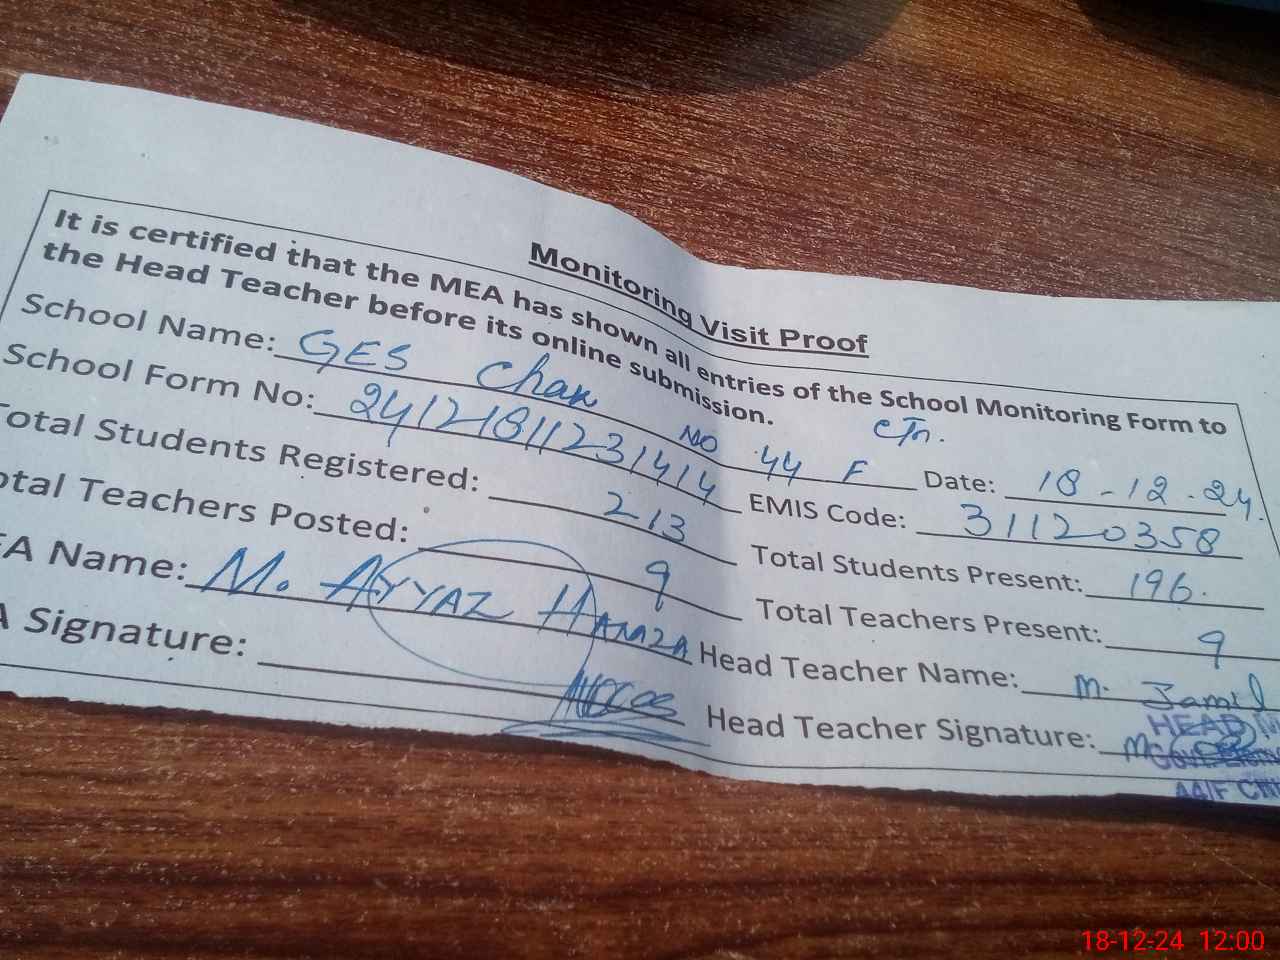 Monitoring Visit Proof
It is certified that the MEA has shown all entries of the School Monitoring Form to
the Head Teacher before its online submission.
School Name: GES Chak NO 44 F CTn. Date: 18-12-24.
School Form No: 24121811231414 EMIS Code: 31120358
otal Students Registered: 213 Total Students Present: 196.
otal Teachers Posted: 9 Total Teachers Present: 9
EA Name: M. AYYAZ HAMZA Head Teacher Name: M. Jamil
A Signature: Head Teacher Signature:
HEAD M
44/F
18-12-24 12:00